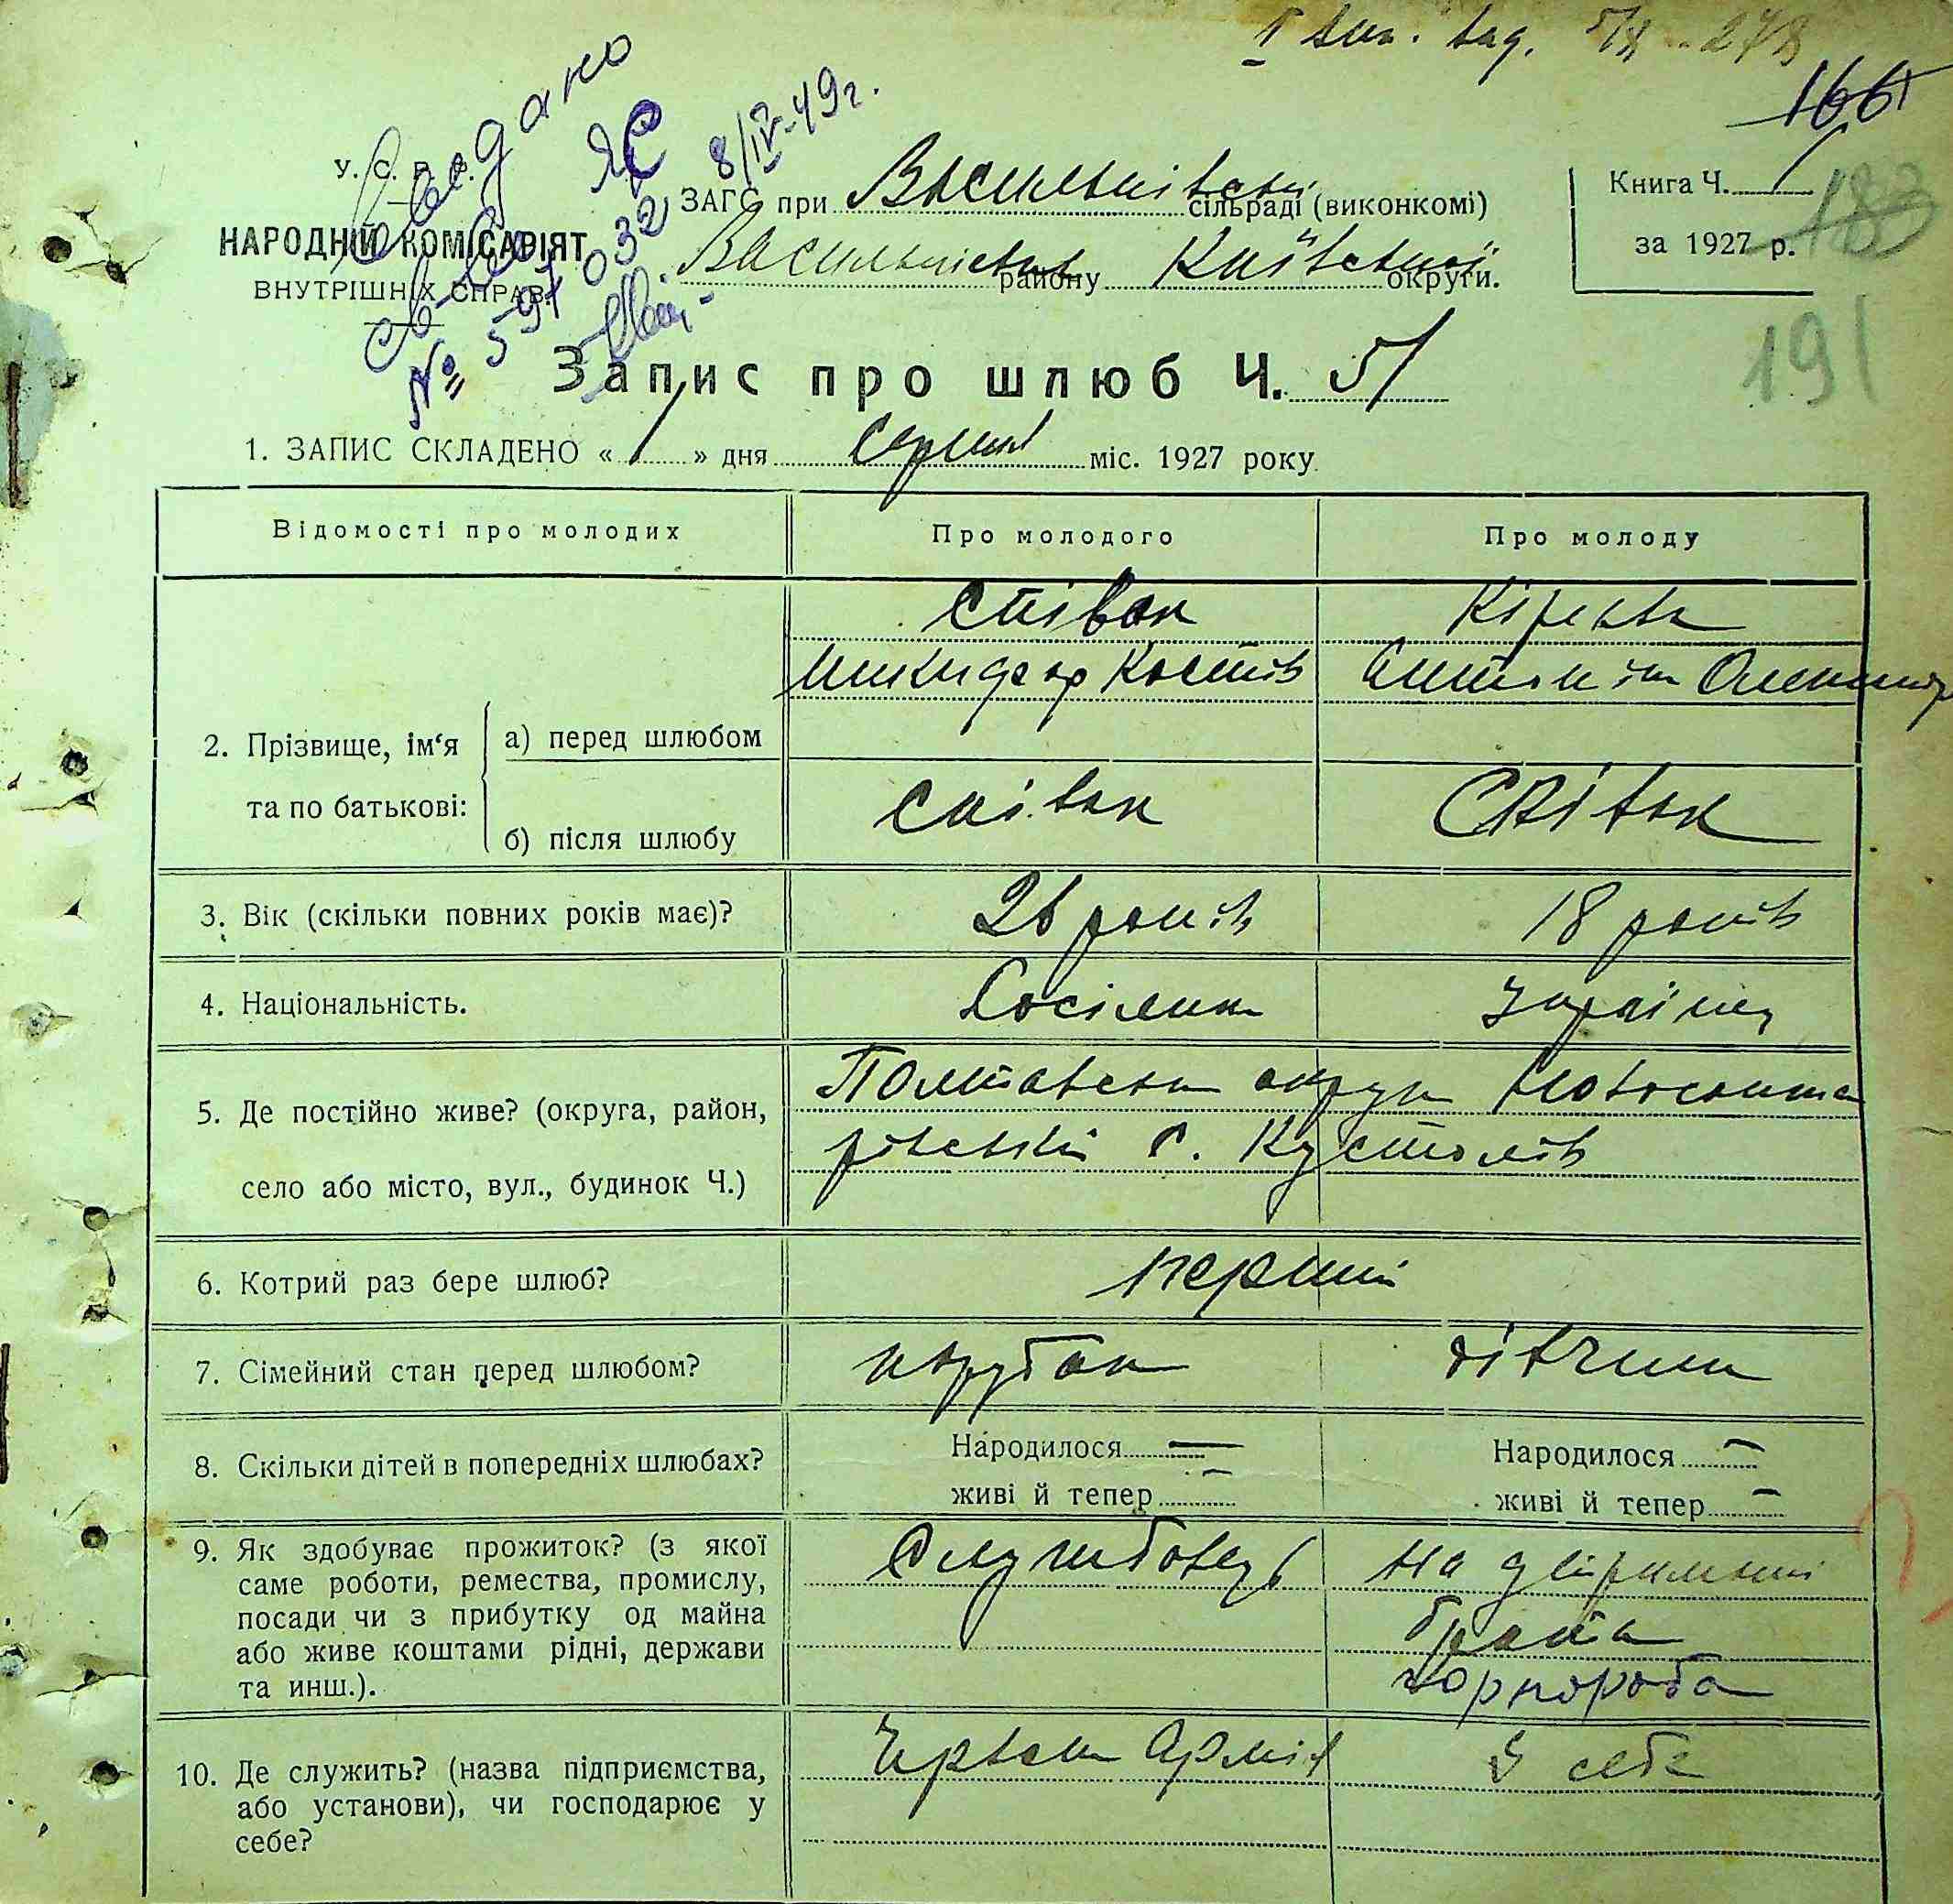 8/IV-49г.
166
У. С. Р. Р.
НАРОДНІЙ КОМІСАРІЯТ
ВНУТРІШНІХ СПРАВ.
Видано
ЯС
№ 591032
ЗАГС при Васильківській сільраді (виконкомі)
Васильківськ. району Київської округи.
Книга Ч. 1
за 1927 р.
183
191
Запис про шлюб Ч. 51
1. ЗАПИС СКЛАДЕНО « 1 » дня серпня міс. 1927 року
Відомості про молодих
Про молодого
Про молоду
2. Прізвище, ім'я та по батькові:
а) перед шлюбом
Співак
Никифор Костів
Кірєєва
Антоніна Олександр
б) після шлюбу
Співак
Співак
3. Вік (скільки повних років має)?
26 років
18 років
4. Національність.
Росіянин
Україн
5. Де постійно живе? (округа, район,
село або місто, вул., будинок Ч.)
Полтавська округа Новосанжа
рівський с. Кустолів
6. Котрий раз бере шлюб?
перший
7. Сімейний стан перед шлюбом?
парубок
дівчина
8. Скільки дітей в попередніх шлюбах?
Народилося —
живі й тепер —
Народилося —
живі й тепер —
9. Як здобуває прожиток? (з якої
саме роботи, ремества, промислу,
посади чи з прибутку од майна
або живе коштами рідні, держави
та инш.).
Службовець
На утриманні
брата
чорнороба
10. Де служить? (назва підприємства,
або установи), чи господарює у
себе?
Червон Армія
У себе